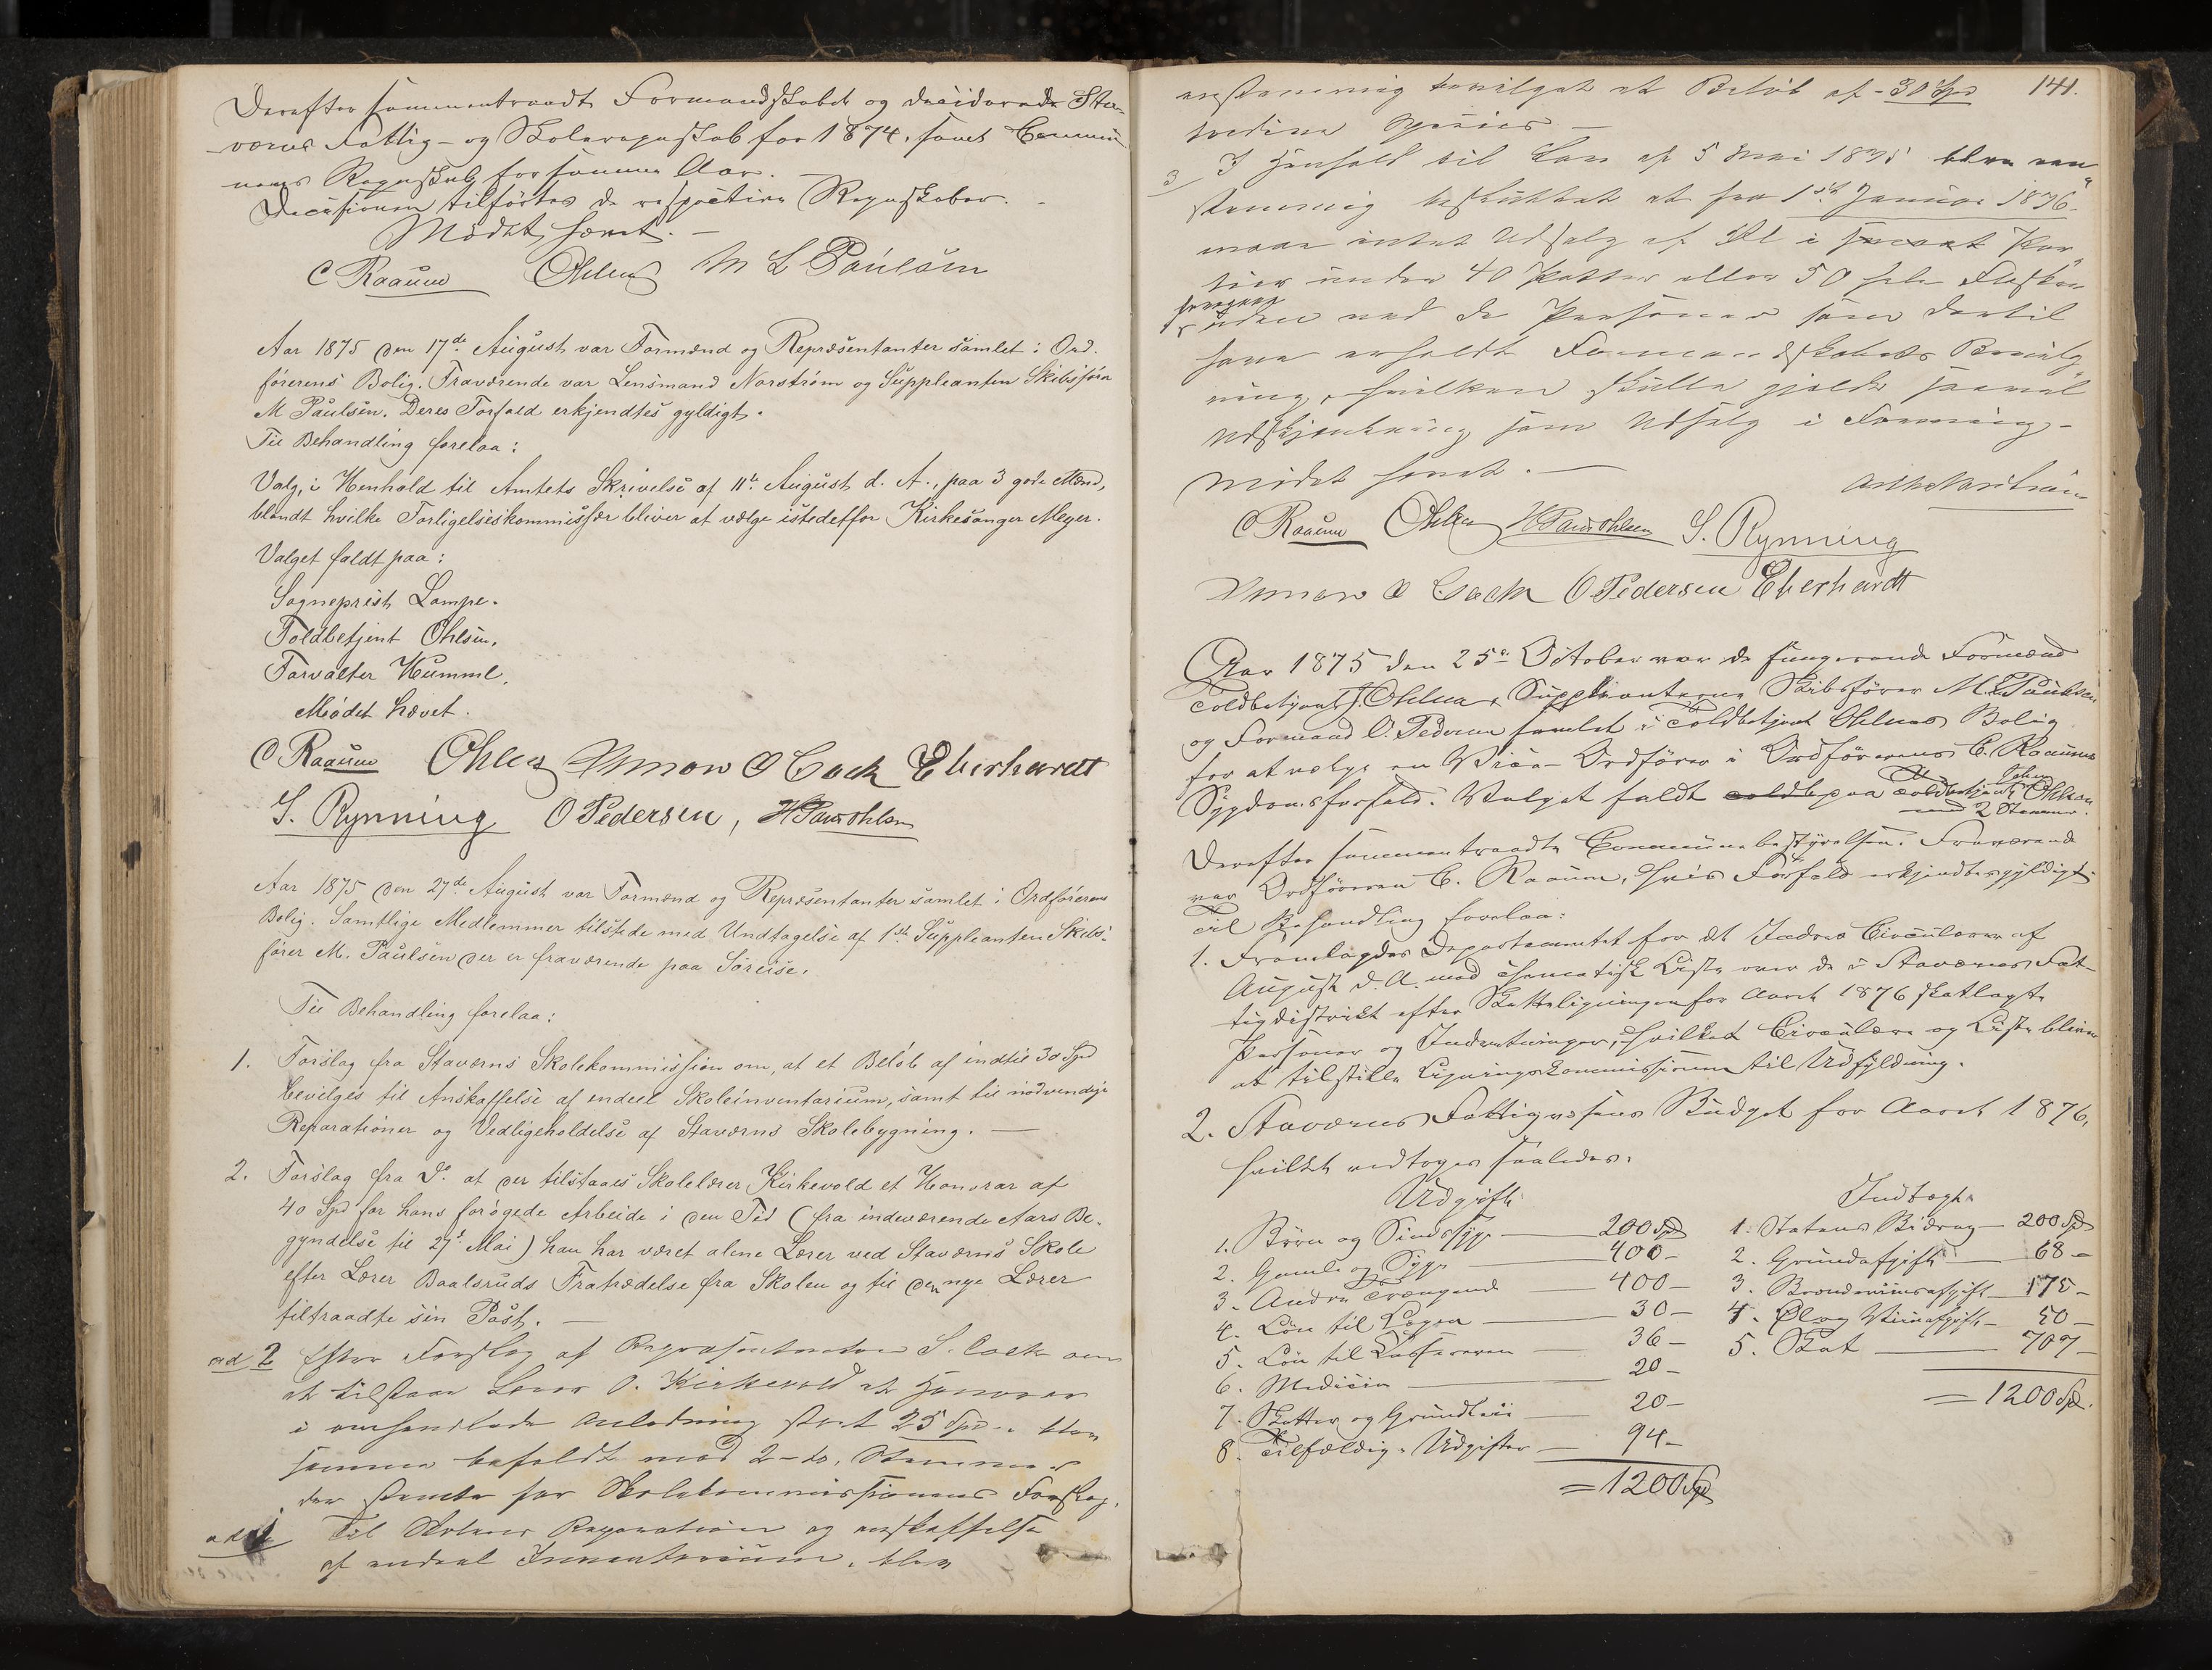 Derefter sammentraadte Formandskabet og deciderede Sta-
værns Fattig- og Skoleregnskab for 1874, samt Commu-
nens Regnskab for samme Aar. –
Decisionen tilførtes de respective Regnskaber. –
Mødet hævet. –
C Raaum Ohlsen M L Paulsen
Aar 1875 den 17de August var Formænd og Repræsentanter samlet i Ord-
førerens Bolig. Fraværende var Lensmand Norström og Suppleanten Skibsfører
M Paulsen. Deres Forfald erkjendtes gyldigt.
Til Behandling forelaa:
Valg, i Henhold til Amtets Skrivelse af 11te August d. A., paa 3 gode Mænd,
blandt hvilke Forligelseskommissær bliver at vælge istedetfor Kirkesanger Meyer.
Valget faldt paa:
Sogneprest Lampe.
Toldbetjent Ohlsen.
Forvalter Humml.
Mødet hævet.
C Raaum Ohlsen Simon C Cock Eberhardt
S. Rynning O Pedersen, H Paus Ohlsen
Aar 1875 den 27de August var Formænd og Repræsentanter samlet i Ordførerens
Bolig. Samtlige Medlemmer tilstede med Undtagelse af 1ste Suppleanten Skibs-
fører M. Paulsen der er fraværende paa Søreise.
Til Behandling forelaa:
1. Forslag fra Staværns Skolekommission om, at et Beløb af indtil 30 Spd
bevilges til Anskaffelse af endeel Skoleinventarium, samt til nødvendige
Reparationer og Vedligeholdelse af Staværns Skolebygning. —
2. Forslag fra Do. at der tilstaaes Skolelærer Kirkevold et Honorar af
40 Spd for hans forøgede Arbeide i den Tid (fra indeværende Aars Be-
gyndelse til 27de Mai) han har været alene Lærer ved Staværns Skole
efter Lærer Baalsruds Fratrædelse fra Skolen og til den nye Lærer
tiltraadte sin Post. —
ad 2 Efter Forslag af Repræsentanten S. Cock om
at tilstaae Lærer O. Kirkevold et Honorar
i omhandlede Anledning stort 25 Spd. blev
samme befaldt med 2 Stemmer
der stemte for Skolekommissionens Forslag.
ad 1 Til Skolens Reparation og anskaffelse
af endeel Inventarium, blev
141.
enstemmig bevilget et Beløb af 30 Spd
tredive Species —
3 I Henhold til Lov af 5 Mai 1875 blev een-
stemmig besluttet at fra 1ste Januar 1876
maae intet Udsalg af Øl i Kvar-
tier under 40 Potter eller 50 hele Flasker
foregaae
uden ved de Personer som dertil
have erholdt Formandskabets Bevilg-
ning, hvilken skulle gjælde saavel
Udskjænkning som Udsalg i Forening –
Mødet hævet. —
C Raaum Ohlsen H Paus Ohlsen S. Rynning
Simon C Cock O Pedersen Eberhardt
Aar 1875 den 25de October var de fungerende Formænd
Toldbetjent J. Ohlsen, Suppleanterne Skibsfører M. L. Paulsen
og Formand O. Pedersen samlet i Toldbetjent Ohlsens Bolig
for at vælge en Vice-Ordfører i Ordførerens C. Raaums
Sygdomsforfald. Valget faldt paa Toldbetjent Johan Ohlsen
med 2 Stemmer.
Derefter sammentraadte Communebestyrelsen. Fraværende
var Ordføreren C. Raaum, hvis Forfald erkjendtes gyldigt.
Til Behandling forelaa:
1. Fremlagdes Departementet for det Indres Circulære af
August d. A. med schematisk Liste over de i Staværns Fat-
tigdistrikt efter Skatteligningen for Aaret 1876 skatlagte
Personer og Indretninger, hvilket Circulære og Liste bliver
at tilstille Ligningskommissionen til Udfyldning.
2. Staværns Fattigvæsens Budget for Aaret 1876,
hvilket vedtoges saaledes:
Udgift:
1. Børn og Sindssyge — 200 Spd
2. Gamle og Syge — 400 –
3. Andre Trængende — 400 –
4. Løn til Lægen — 30 –
5. Løn til Kassereren — 36 –
6. Medicin — 20 –
7. Skatter og Grundleie — 20 –
8. Tilfældige Udgifter — 94 –
= 1200 Spd
Indtægt
1. Statens Bidrag — 200 Spd
2. Grundafgift — 68 –
3. Brændeviinsafgift — 175 –
4. Øl og Viinafgift — 50 –
5. Skat — 707 –
= 1200 Spd.